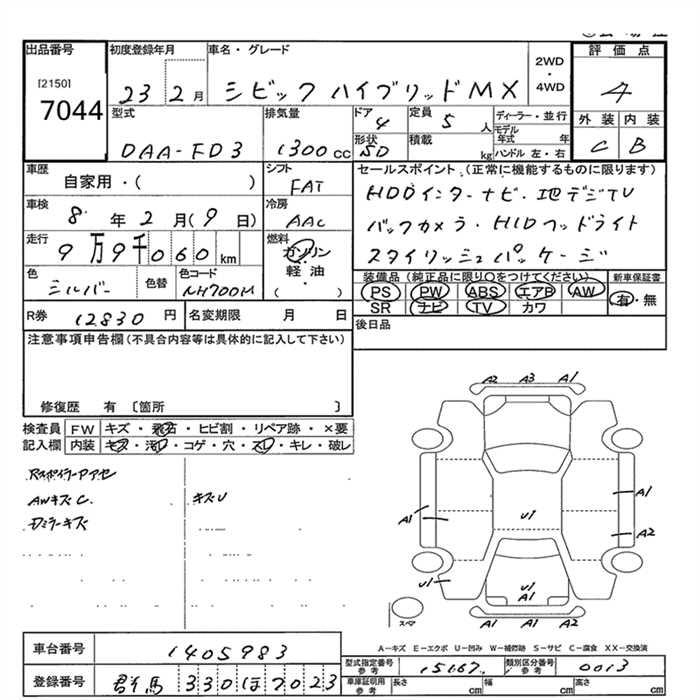 出品番号 初度登録年月 車名・グレード 2WD・4WD 評価点
[2150]
7044
23 2月 シビック ハイブリッドMX 4
型式 排気量 ドア 4 定員 5人 ディーラー・並行 外装 内装
DAA-FD3 1300cc 形状 5D 積載 kg モデル年式 年 ハンドル 左・右 C B
車歴 自家用・( ) シフト FAT セールスポイント(正常に機能するものに限ります)
車検 8年 2月(9日) 冷房 AAC HDDインターナビ・地デジTV
バックカメラ・HIDヘッドライト
走行 9万9千060km 燃料 ガソリン 軽油・( ) スタイリッシュパッケージ
色 シルバー 色替 色コード NH700M 装備品(純正品に限り○をつけてください) 新車保証書
PS PW ABS エアB AW 有・無
SR ナビ TV カワ
R券 12830円 名変期限 月 日 後日品
注意事項申告欄(不具合内容等は具体的に記入して下さい)
修復歴 有 [箇所 ]
検査員記入欄 FW キズ・飛石・ヒビ割・リペア跡・×要
内装 キズ・汚レ・コゲ・穴・スレ・キレ・破レ
AWキズC. キズU
A2 A3 A1
A1 U1 A1
A2
U1 U1
A1
スペア
A1 A1 A2
A-キズ E-エクボ U-凹み W-補修跡 S-サビ C-腐食 XX-交換済
車台番号 1405983 型式指定番号 参考 15167 類別区分番号 参考 0013
登録番号 群馬 330ほ7023 車庫証明用 参考 長さ cm 幅 cm 高さ cm